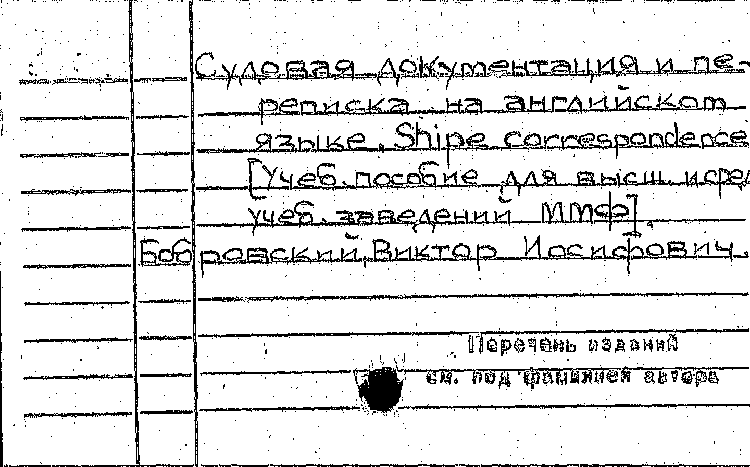 Судовая документация и пе-
реписка на английском
языке. Shipe correspondence
[Учеб. пособие для высш. и сред.
учеб. заведений ММФ].
Бобровский, Виктор Иосифович.
Перечень изданий
см. под фамилией автора